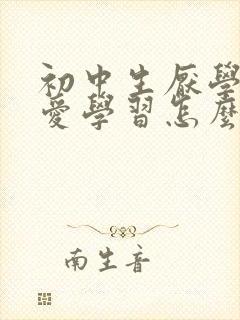 初中生厭學
愛學習怎麼
南生音